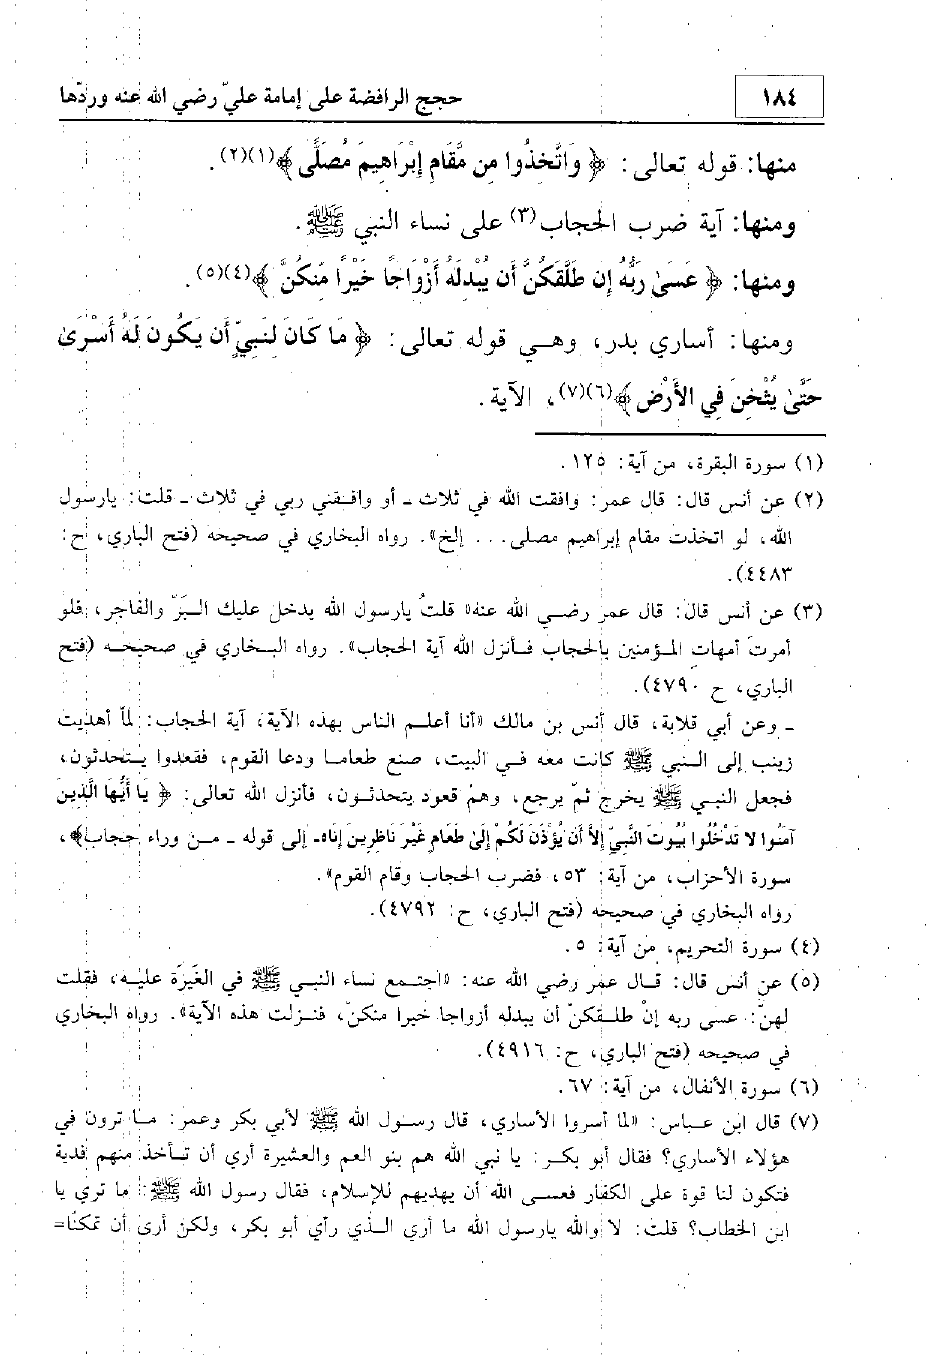 ١٨٤
حجج الرافضة على إمامة عليّ رضي الله عنه وردّها
منها: قوله تعالى: ﴿ وَاتَّخِذُوا مِن مَّقَامِ إِبْرَاهِيمَ مُصَلًّى ﴾(١)(٢).
ومنها: آية ضرب الحجاب(٣) على نساء النبي ﷺ.
ومنها: ﴿ عَسَىٰ رَبُّهُ إِن طَلَّقَكُنَّ أَن يُبْدِلَهُ أَزْوَاجًا خَيْراً مِّنكُنَّ ﴾(٤)(٥).
ومنها: أسارى بدر، وهي قوله تعالى: ﴿ مَا كَانَ لِنَبِيٍّ أَن يَكُونَ لَهُ أَسْرَىٰ
حَتَّىٰ يُثْخِنَ فِي الأَرْضِ ﴾(٦)(٧)، الآية.
(١) سورة البقرة، من آية: ١٢٥.
(٢) عن أنس قال: قال عمر: وافقت الله في ثلاث ـ أو وافقني ربي في ثلاث ـ قلت: يارسول
الله، لو اتخذت مقام إبراهيم مصلى... إلخ». رواه البخاري في صحيحه (فتح الباري، ح:
٤٤٨٣).
(٣) عن أنس قال: قال عمر رضي الله عنه» قلتُ يارسول الله يدخل عليك البَرّ والفاجر، فلو
أمرتَ أمهات المؤمنين بالحجاب فأنزل الله آية الحجاب». رواه البخاري في صحيحه (فتح
الباري، ح ٤٧٩٠).
ـ وعن أبي قلابة، قال أنس بن مالك «أنا أعلم الناس بهذه الآية، آية الحجاب: لمّا أهديت
زينب إلى النبي ﷺ كانت معه في البيت، صنع طعاما ودعا القوم، فقعدوا يتحدثون،
فجعل النبي ﷺ يخرج ثمّ يرجع، وهم قعود يتحدثون، فأنزل الله تعالى: ﴿ يَا أَيُّهَا الَّذِينَ
آمَنُوا لا تَدْخُلُوا بُيُوتَ النَّبِيِّ إِلاَّ أَن يُؤْذَنَ لَكُمْ إِلَىٰ طَعَامٍ غَيْرَ نَاظِرِينَ إِنَاهُ- إلى قوله ـ من وراء حجاب﴾،
سورة الأحزاب، من آية: ٥٣، فضرب الحجاب وقام القوم».
رواه البخاري في صحيحه (فتح الباري، ح: ٤٧٩٢).
(٤) سورة التحريم، من آية: ٥.
(٥) عن أنس قال: قال عمر رضي الله عنه: «اجتمع نساء النبي ﷺ في الغَيرَة عليه، فقلت
لهنّ: عسى ربه إنْ طلقكنّ أن يبدله أزواجا خيرا منكن، فنزلت هذه الآية». رواه البخاري
في صحيحه (فتح الباري، ح: ٤٩١٦).
(٦) سورة الأنفال، من آية: ٦٧.
(٧) قال ابن عباس: «لما أسروا الأساري، قال رسول الله ﷺ لأبي بكر وعمر: ما ترون في
هؤلاء الأساري؟ فقال أبو بكر: يا نبي الله هم بنو العم والعشيرة أري أن تأخذ منهم فدية
فتكون لنا قوة على الكفار فعسى الله أن يهديهم للإسلام، فقال رسول الله ﷺ: ما تري يا
ابن الخطاب؟ قلت: لا والله يارسول الله ما أري الذي رآي أبو بكر، ولكن أرى أن تمكنّا=